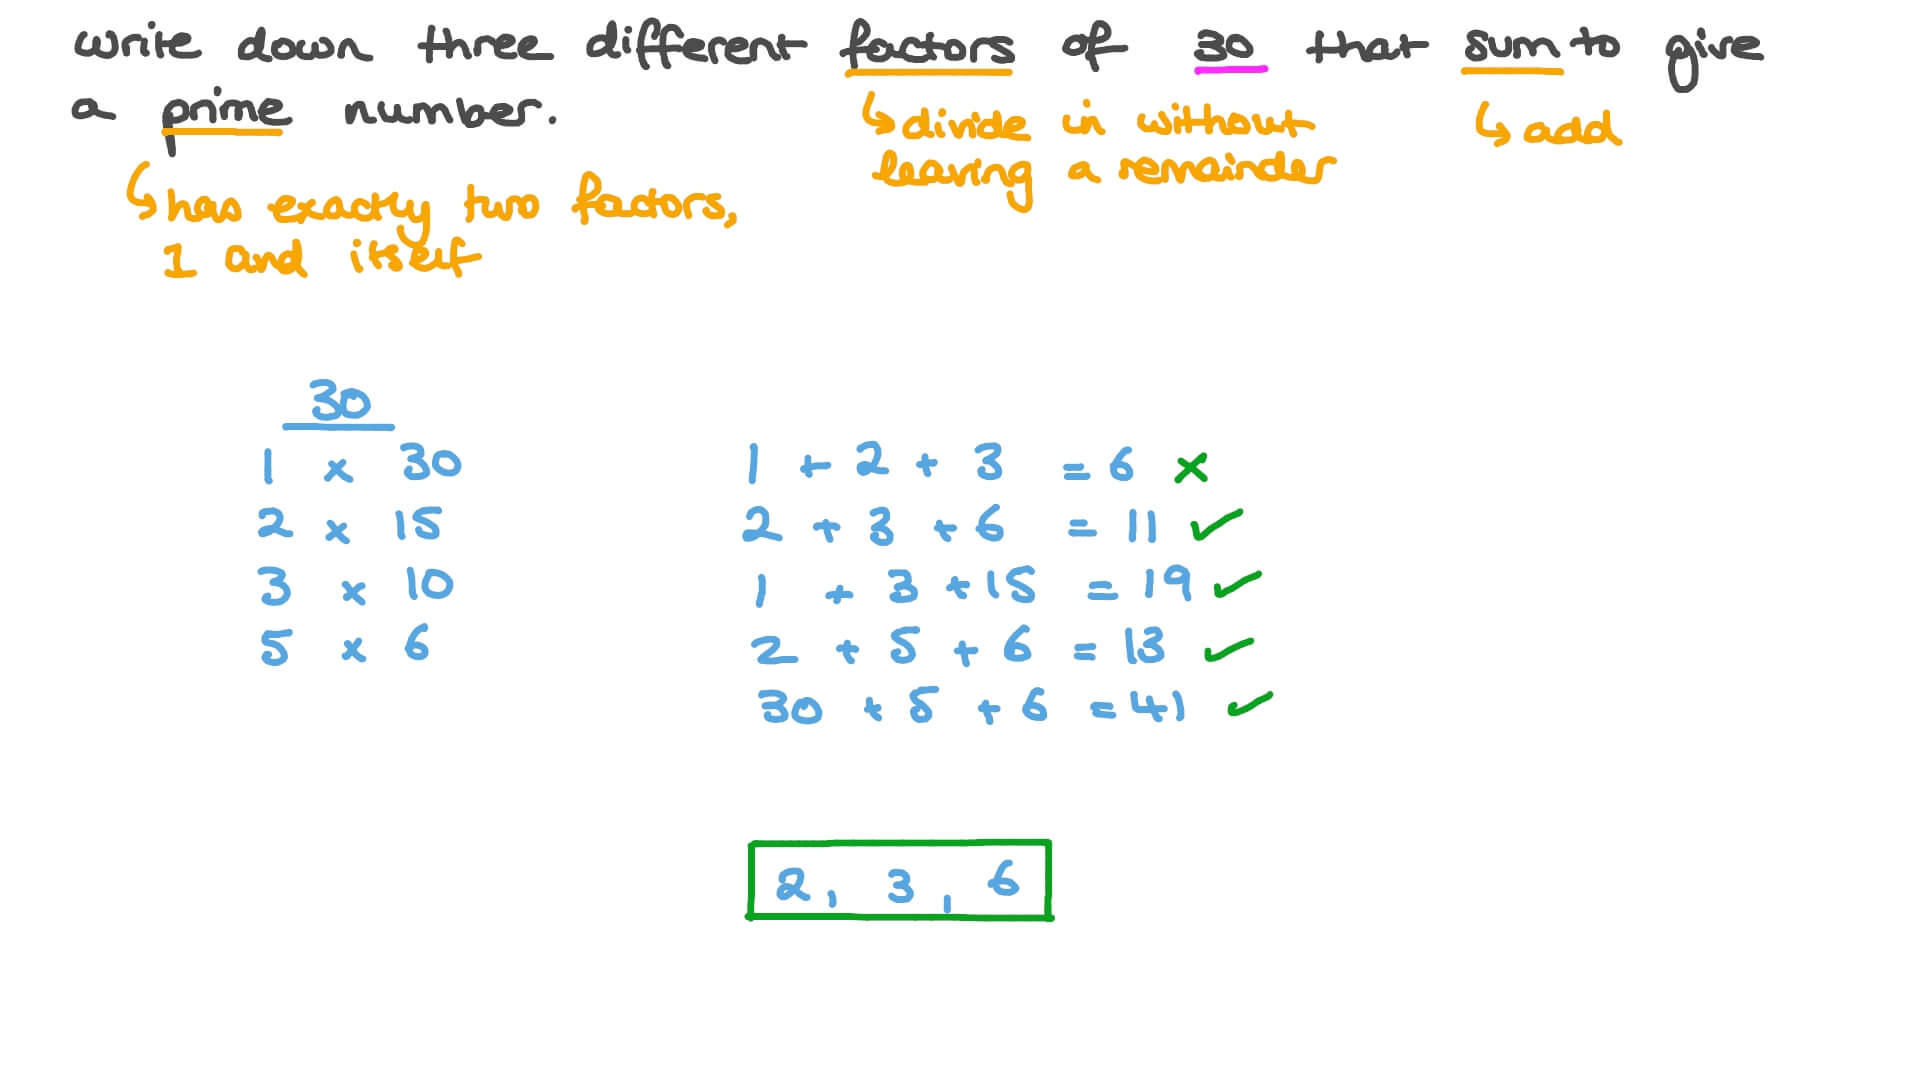 write down three different factors of 30 that sum to give
a prime number.
↳ divide in without
leaving a remainder
↳ add
↳ has exactly two factors,
1 and itself
30
1 × 30
2 × 15
3 × 10
5 × 6
1 + 2 + 3 = 6 ×
2 + 3 + 6 = 11 ✓
1 + 3 + 15 = 19 ✓
2 + 5 + 6 = 13 ✓
30 + 5 + 6 = 41 ✓
2, 3, 6